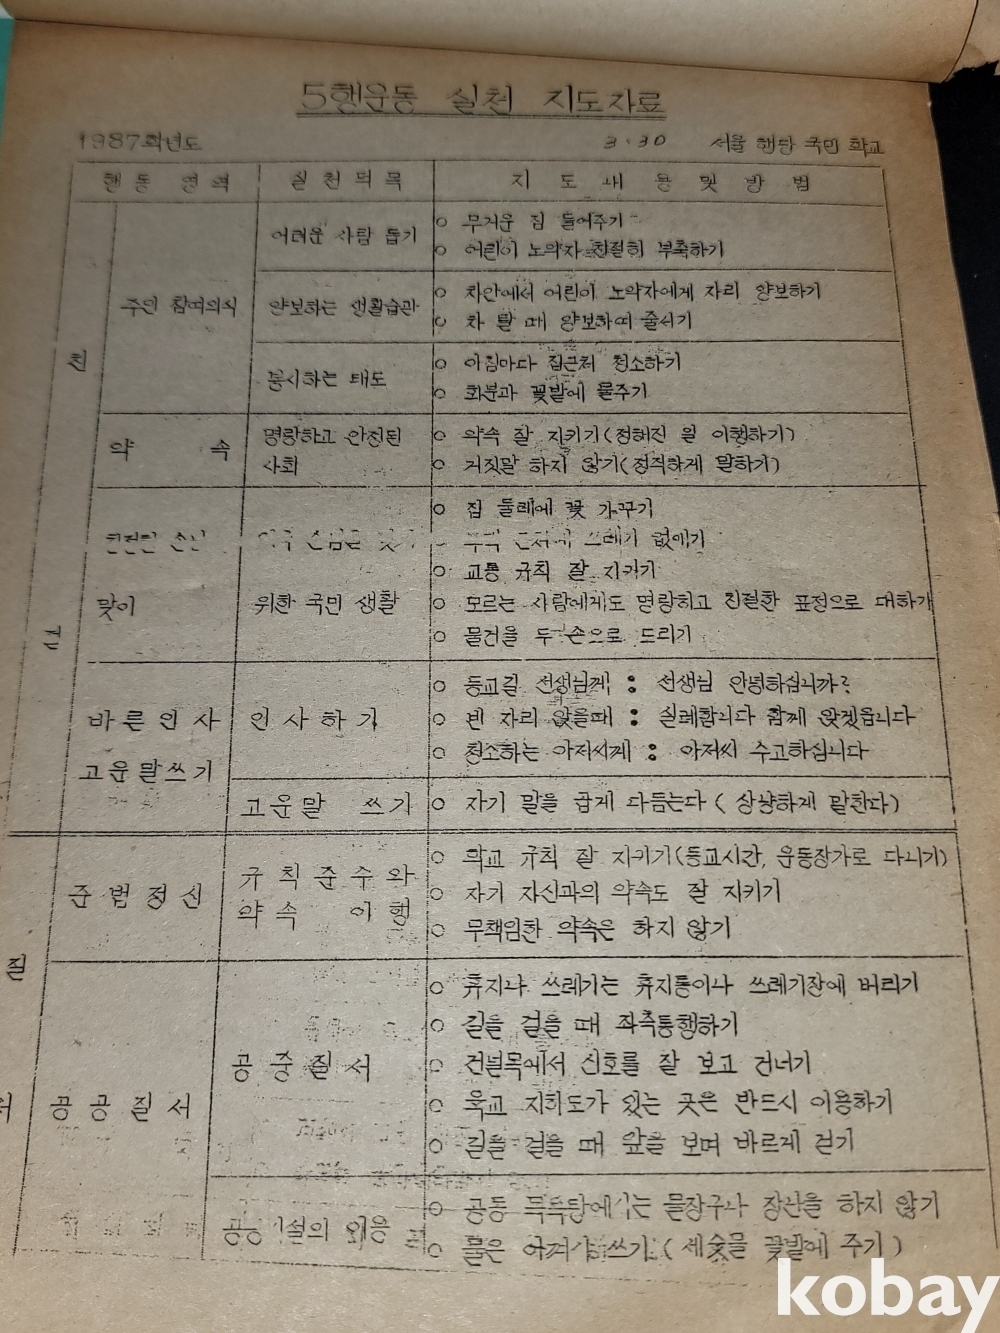 5행운동 실천 지도자료
1987학년도 3.30 서울 행당 국민 학교
행동 영역 실천덕목 지도내용및방법
친
주인 참여의식
어려운 사람 돕기
○ 무거운 짐 들어주기
○ 어린이 노약자 친절히 부축하기
양보하는 생활습관
○ 차안에서 어린이 노약자에게 자리 양보하기
○ 차 탈 때 양보하며 줄서기
봉사하는 태도
○ 아침마다 집근처 청소하기
○ 화분과 꽃밭에 물주기
약 속
명랑하고 안정된
사회
○ 약속 잘 지키기(정해진 일 이행하기)
○ 거짓말 하지 않기(정직하게 말하기)
절
맞이
위한 국민 생활
○ 집 둘레에 꽃 가꾸기
쓰레기 없애기
○ 교통 규칙 잘 지키기
○ 모르는 사람에게도 명랑하고 친절한 표정으로 대하기
○ 물건을 두 손으로 드리기
바른인사
고운말쓰기
인사하기
○ 등교길 선생님께 : 선생님 안녕하십니까?
○ 빈 자리 앉을때 : 실례합니다 함께 앉겠읍니다
○ 청소하는 아저씨께 : 아저씨 수고하십니다
고운말 쓰기
○ 자기 말을 곱게 다듬는다 ( 상냥하게 말한다)
질
서
준법정신
규칙준수와
약속 이행
○ 학교 규칙 잘 지키기(등교시간, 운동장가로 다니기)
○ 자기 자신과의 약속도 잘 지키기
○ 무책임한 약속은 하지 않기
공공질서
공중질서
○ 휴지나 쓰레기는 휴지통이나 쓰레기장에 버리기
○ 길을 걸을 때 좌측통행하기
○ 건널목에서 신호를 잘 보고 건너기
○ 육교 지하도가 있는 곳은 반드시 이용하기
○ 길을 걸을 때 앞을 보며 바르게 걷기
○ 공동 목욕탕에서는 물장구나 장난을 하지 않기
○ 물은 아껴서 쓰기 ( 세숫물 꽃밭에 주기 )
kobay